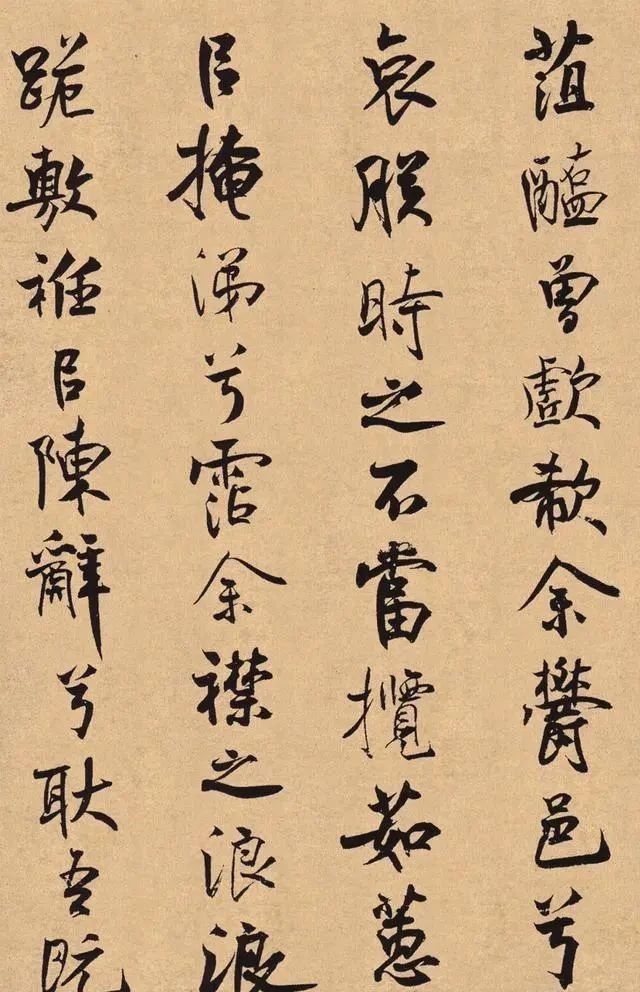 菹醢曾歔欷余鬱邑兮
哀朕時之不當攬茹蕙
㠯掩涕兮霑余襟之浪浪
跪敷衽㠯陳辭兮耿吾既